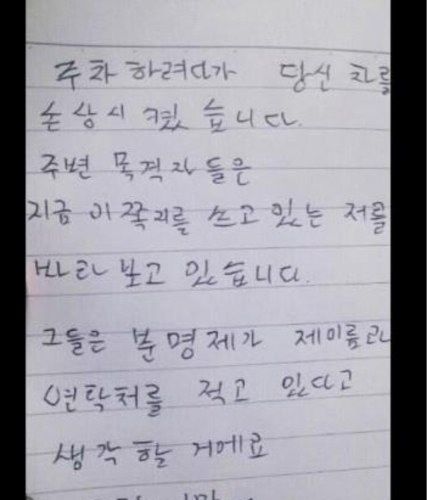 주차 하려다가 당신 차를
손상시 켰 습니다.
주변 목격자 들은
지금 이쪽지를 쓰고 있는 저를
바라 보고 있습니다.
그들은 분명 제가 제이름과
연락처를 적고 있다고
생각 할 거에요